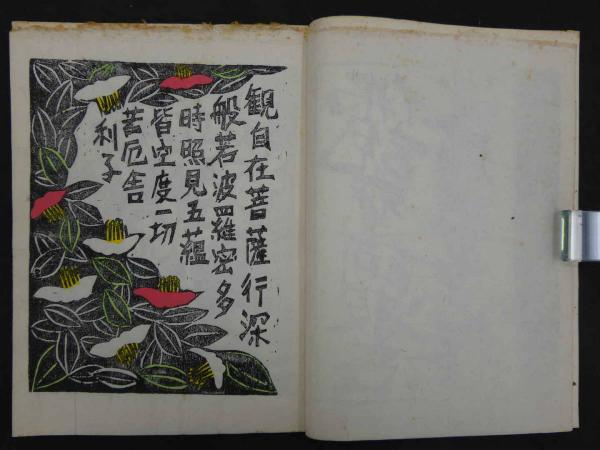 観自在菩薩行深
般若波羅密多
時照見五蘊
皆空度一切
苦厄舎
利子